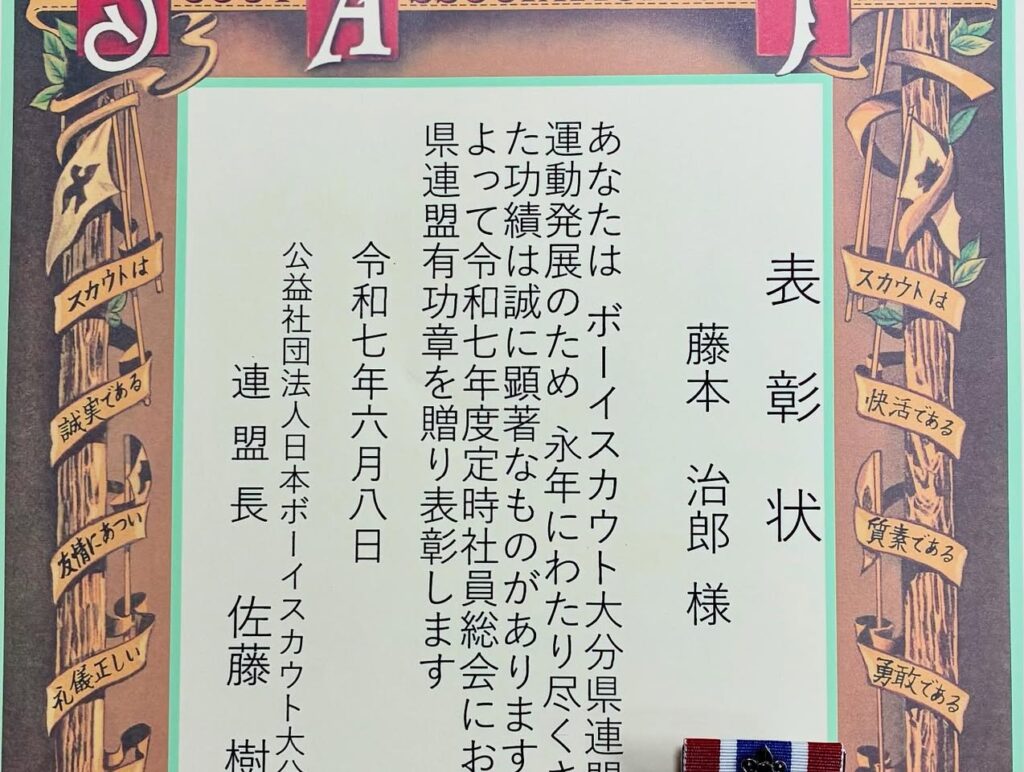 表彰状
藤本 治郎 様
あなたは ボーイスカウト大分県連盟
運動発展のため 永年にわたり尽くさ
た功績は誠に顕著なものがあります
よって令和七年度定時社員総会にお
県連盟有功章を贈り表彰します
令和七年六月八日
公益社団法人日本ボーイスカウト大分
連盟長 佐藤 樹
スカウトは
誠実である
友情にあつい
礼儀正しい
スカウトは
快活である
質素である
勇敢である